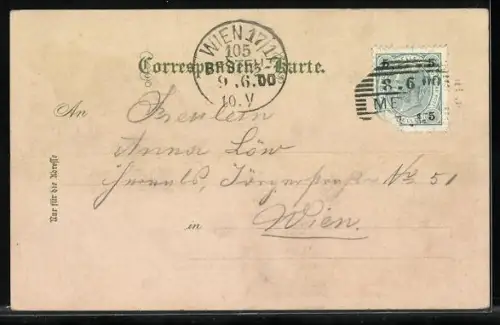 WIEN 17/1
105
BESTELLT
9.6.00
10.V
Correspondenz-Karte.
5 5
8.6.00
ME
5
An
Fräulein
Anna Löw
Hernals, Jörgerstraße No 51
in Wien.
Nur für die Adresse